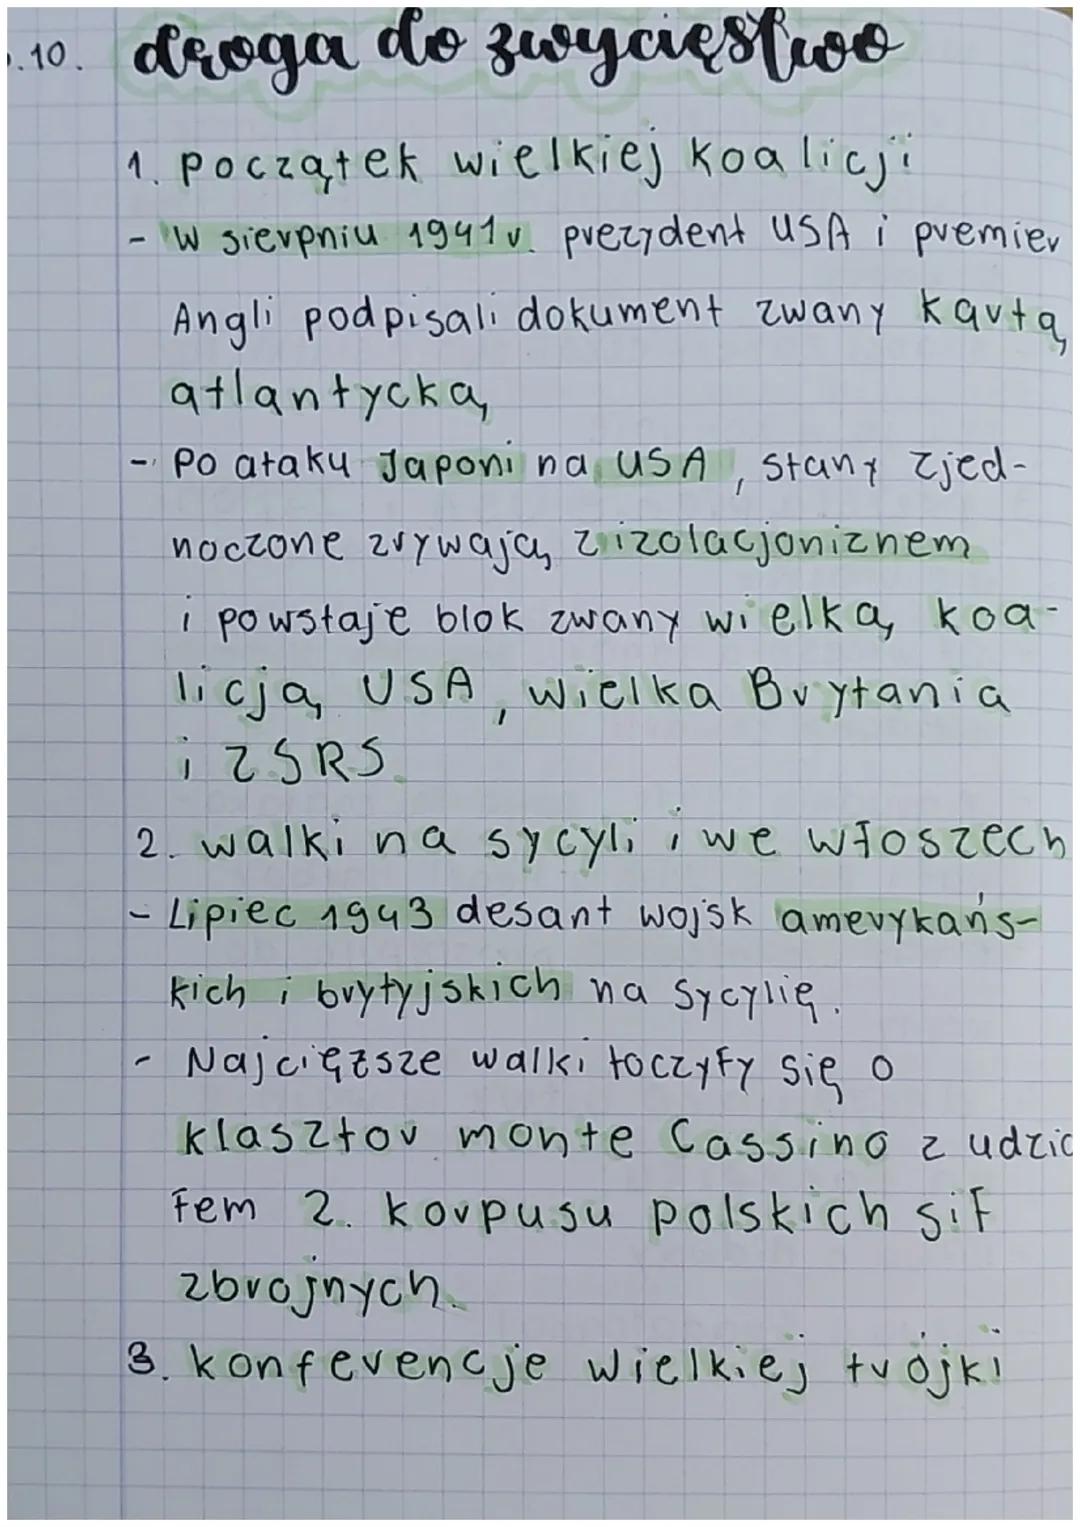 .10. droga do zwycięstwo
1. początek wielkiej koalicji
- W sierpniu 1941 r. prezydent USA i premier
Angli podpisali dokument zwany kartą
atlantycką
- Po ataku Japoni na USA, stany zjed-
noczone zrywają z izolacjoniznem
i powstaje blok zwany wielką koa-
licją USA, wielka Brytania
i ZSRS.
2. walki na sycyli i we włoszech
- Lipiec 1943 desant wojsk amerykańs-
kich i brytyjskich na Sycylię.
- Najcięższe walki toczyły się o
klasztor monte Cassino z udzia
łem 2. korpusu polskich sił
zbrojnych.
3. konferencje wielkiej trójki